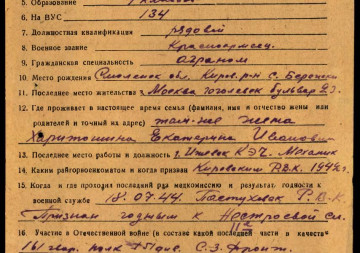 5. Образование
6. На ВУС 134
7. Должностная квалификация рядовой
8. Военное звание Красноармеец
9. Гражданская специальность
10. Место рождения Смоленск. обл. Киров. р-н с.
11. Последнее место жительства г. Москва Гоголевск. бульвар 23.
12. Где проживает в настоящее время семья (фамилия, имя и отчество жены или
родителей и точный их адрес) там-же жена
Харитошина Екатерина Ивановн
13. Последнее место работы и должность г. Ижевск КЭЧ. Механик
14. Каким райгорвоенкоматом и когда призван Кировским РВК. 1941 г.
15. Когда и где проходил последний раз медкомиссию и результат годности к
военной службе 18.07.44. Пастуховск. Р.В.К.
Признан годным к
16. Участие в Отечественной войне (в составе какой последней части и в качестве
161 гвар. полк 51 див. С.З. Фронт.